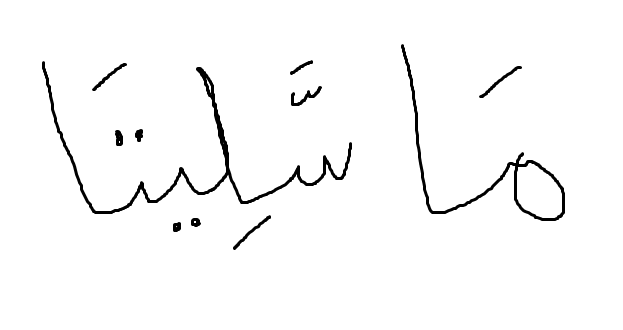 مَا سَّلِيتَا